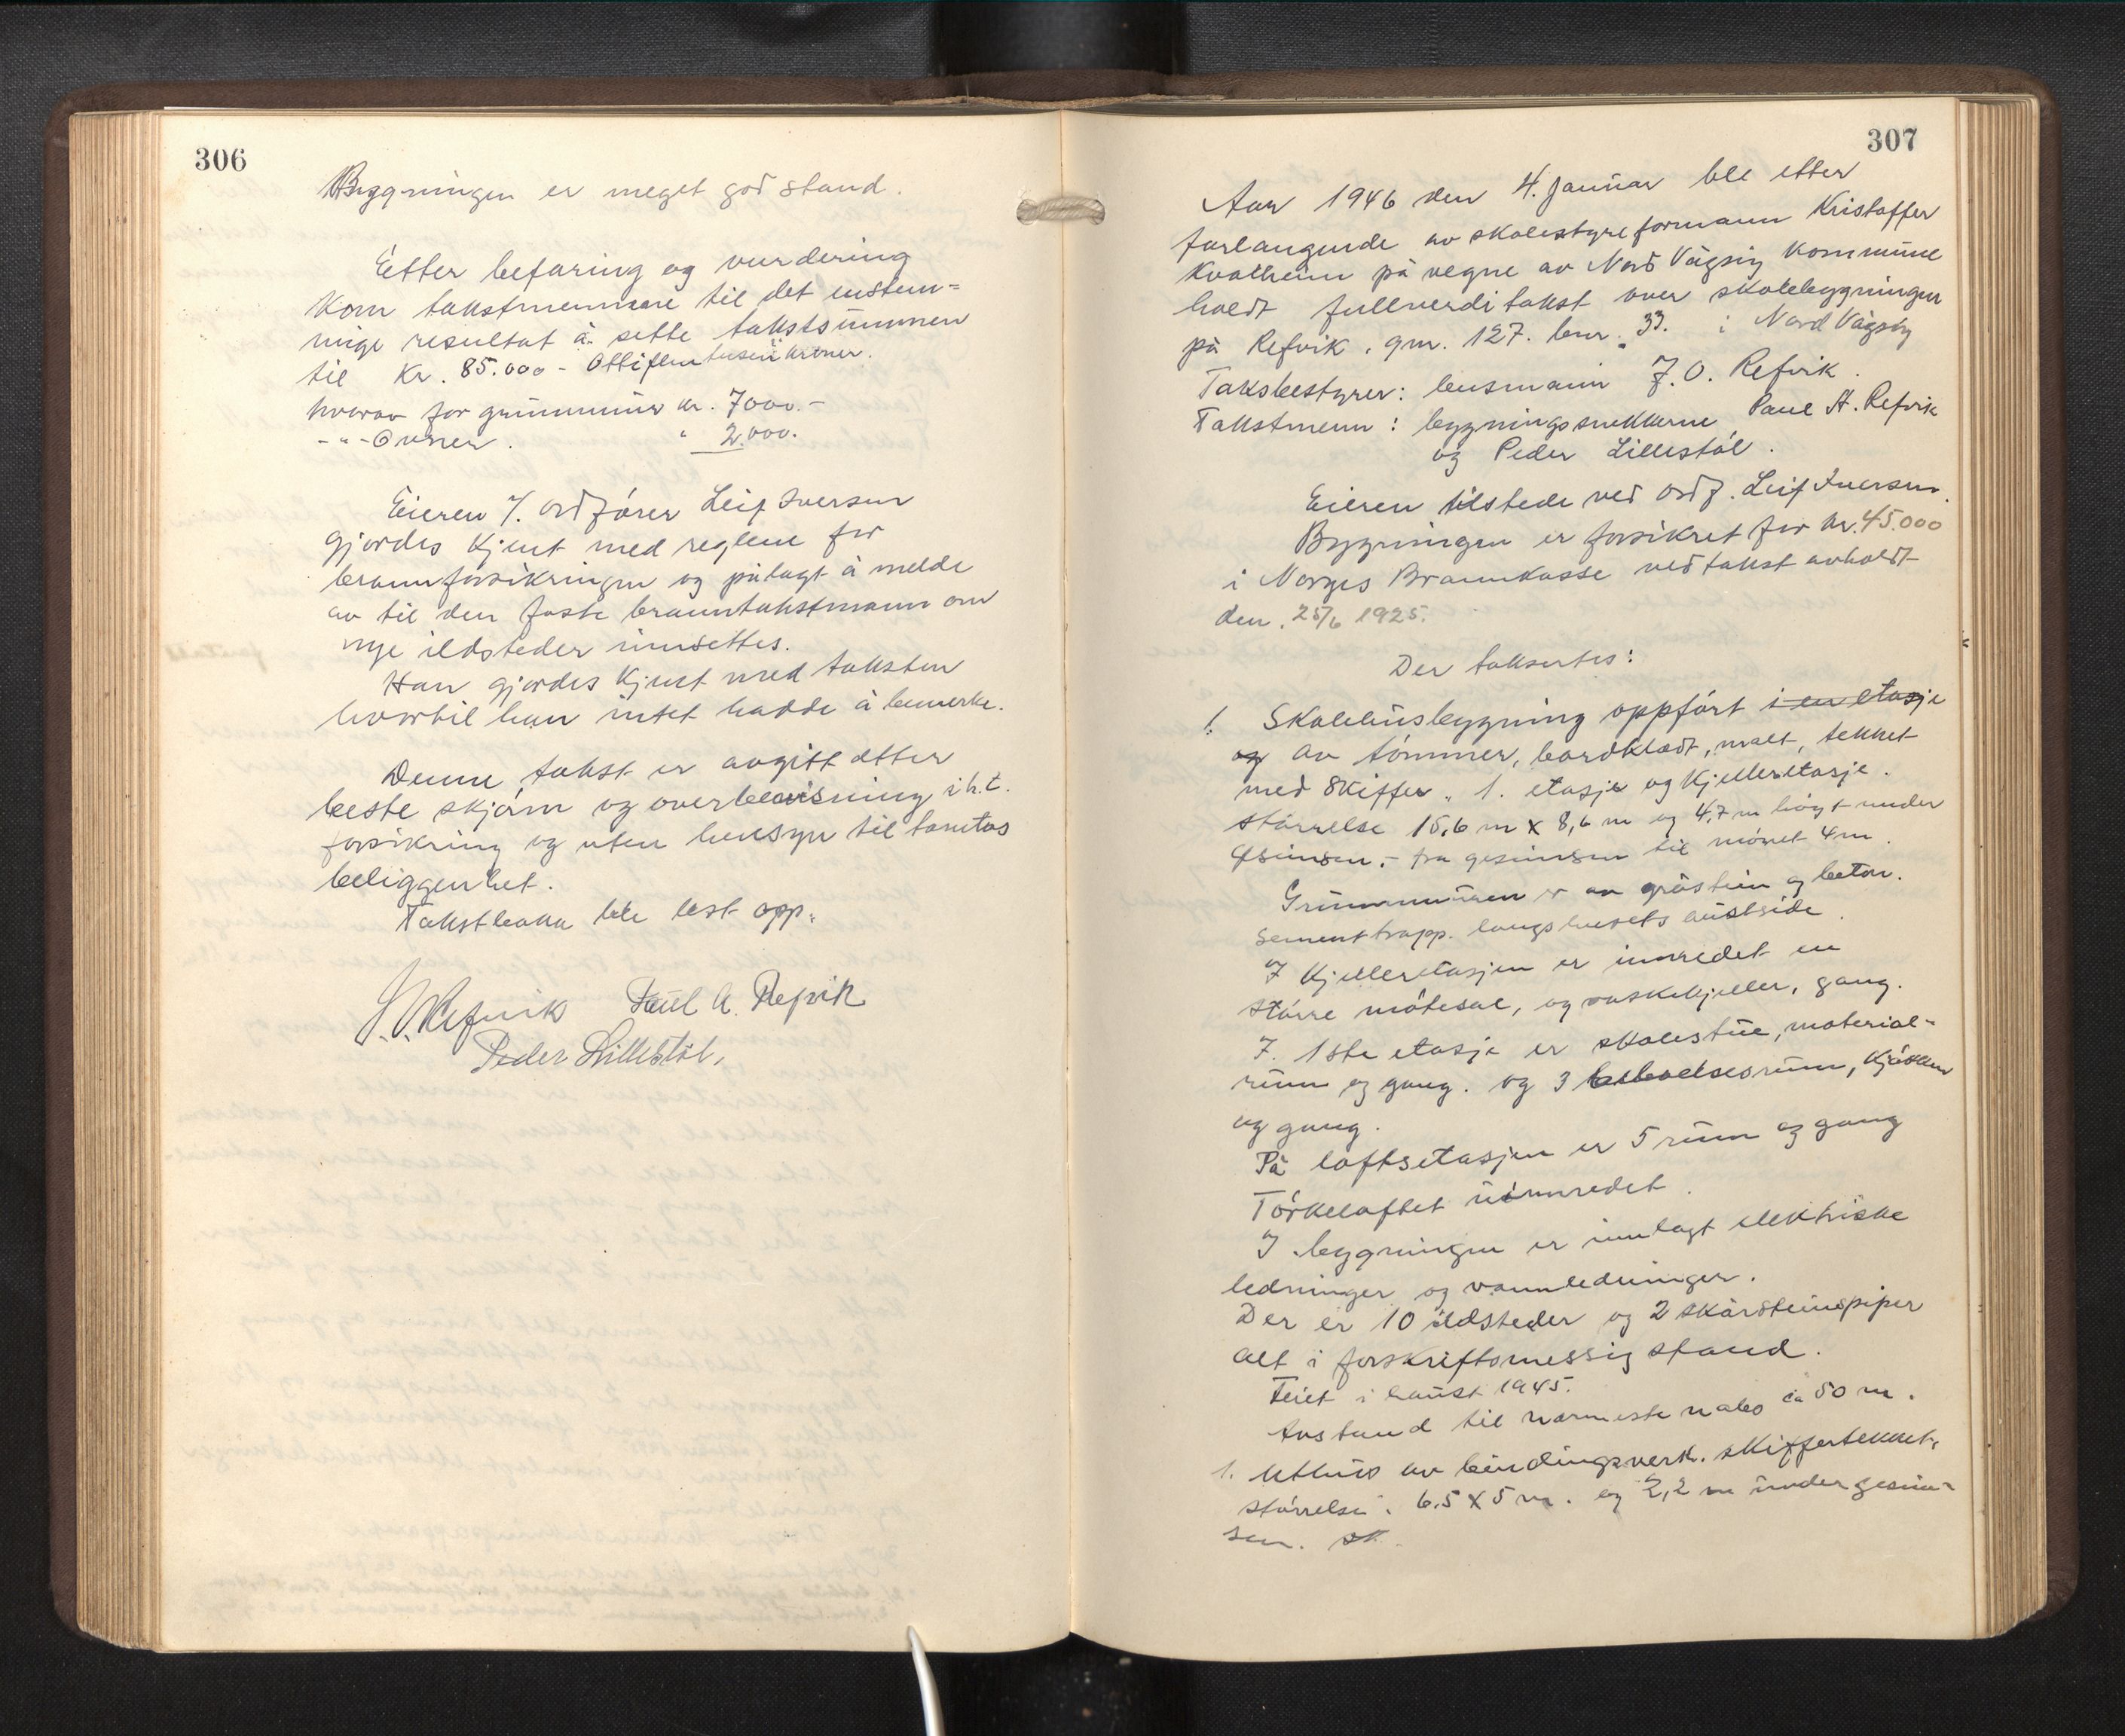 306
Bygningen er meget god stand.
Etter befaring og vurdering
kom takstmennene til det enstem=
mige resultat å sette takstsummen
til Kr. 85.000 - Ottiftemtusen kroner.
hvorav for grunnmur kr. 7000.-
-"- Ovner. " 2.000.
Eieren v/. ordfører Leif Iversen
gjordes kjent med reglene for
brannforsikringen og pålagt å melde
av til den faste branntakstmann om
nye ildsteder innsettes.
Han gjordes kjent med taksten
hvortil han intet hadde å bemerke.
Denne takst er avgitt etter
beste skjønn og overbevisning i.h.t.
forsikring og uten hensyn til tomtas
beliggenhet.
Takstboka ble lest opp.
J. O. Refvik Paul A. Refvik
Peder Lillestøl.
307
Aar 1946 den 4. januar ble etter
forlangende av skolestyreformann Kristoffer
Kvalheim på vegne av Nord Vågsøy kommune
holdt fullverditakst over skolebygningen
på Refvik. gnr. 127. bnr. 33. i Nord Vågsøy
Taksbestyrer: lensmann J. O. Refvik.
Takstmenn: bygningssnekkerne Paul A. Refvik
og Peder Lillestøl.
Eieren tilstede ved ordf. Leif Iversen.
Bygningen er forsikret for kr. 45.000
i Norges Brannkasse ved takst avholdt
den. 25/6 1925.
Der taksertes:
1. Skolehusbygning oppført i en etasje
og av tømmer, bordklædt, malt, tekket
med skiffer. 1. etasje og kjelleretasje.
størrelse 15,6 m x 8,6 m og 4,7 m høgt under
gesimsen. - fra gesimsen til mønet 4 m.
Grunnmuren er av gråstein og beton.
Sementtrapp. langs husets austside.
I kjelleretasjen er innredet en
større møtesal, og vaskekjeller, gang.
I. 1ste etasje er skolestue, material-
rum og gang. og 3 beboelsesrum, kjøkken
og gang.
På loftsetasjen er 5 rum og gang
Tørkeloftet uinnredet.
I bygningen er innlagt elektriske
ledninger og vannledninger.
Der er 10 ildsteder og 2 skårsteinspiper
alt i forskriftsmessig stand.
Feiet i haust 1945.
Avstand til nærmeste nabo ca 50 m.
1. Uthus av bindingsverk. skiffertekket,
størrelse. 6,5 x 5 m. og 2,2 m under gesim-
sen. sk